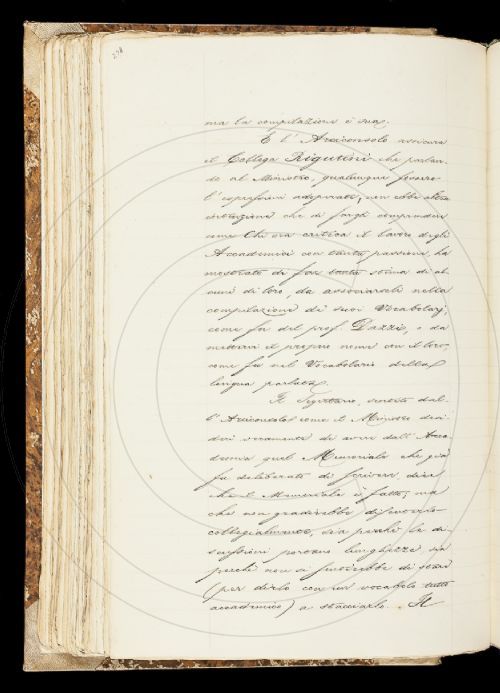 238
ma la compilazione è sua.
E l'Arciconsolo assicura
il Collega Rigutini che parlan-
do al Ministro, qualunque fossero
l'espressioni adoperate, non ebbe altra
intenzione che di fargli comprendere
come Chi ora critica il lavoro degli
Accademici con tanta passione, ha
mostrato di fare tanta stima di al-
cuni di loro, da associarseli nella
compilazione di suoi Vocabolarj
come fu del prof. Dazzi, e da
mettervi il proprio nome con il loro
come fu nel Vocabolario della
lingua parlata.
Il Segretario, sentito dal-
l'Arciconsolo come il Ministro desi-
deri veramente di avere dall'Acca-
demia quel Memoriale che già
fu deliberato di scrivere, dice
che il Memoriale è fatto, ma
che non gradirebbe discuterlo
collegialmente, sia perchè le di-
scussioni portano lunghezze sia
perchè non si finirebbe di
(per dirlo con un vocabolo tutto
accademico) a stacciarlo. Il